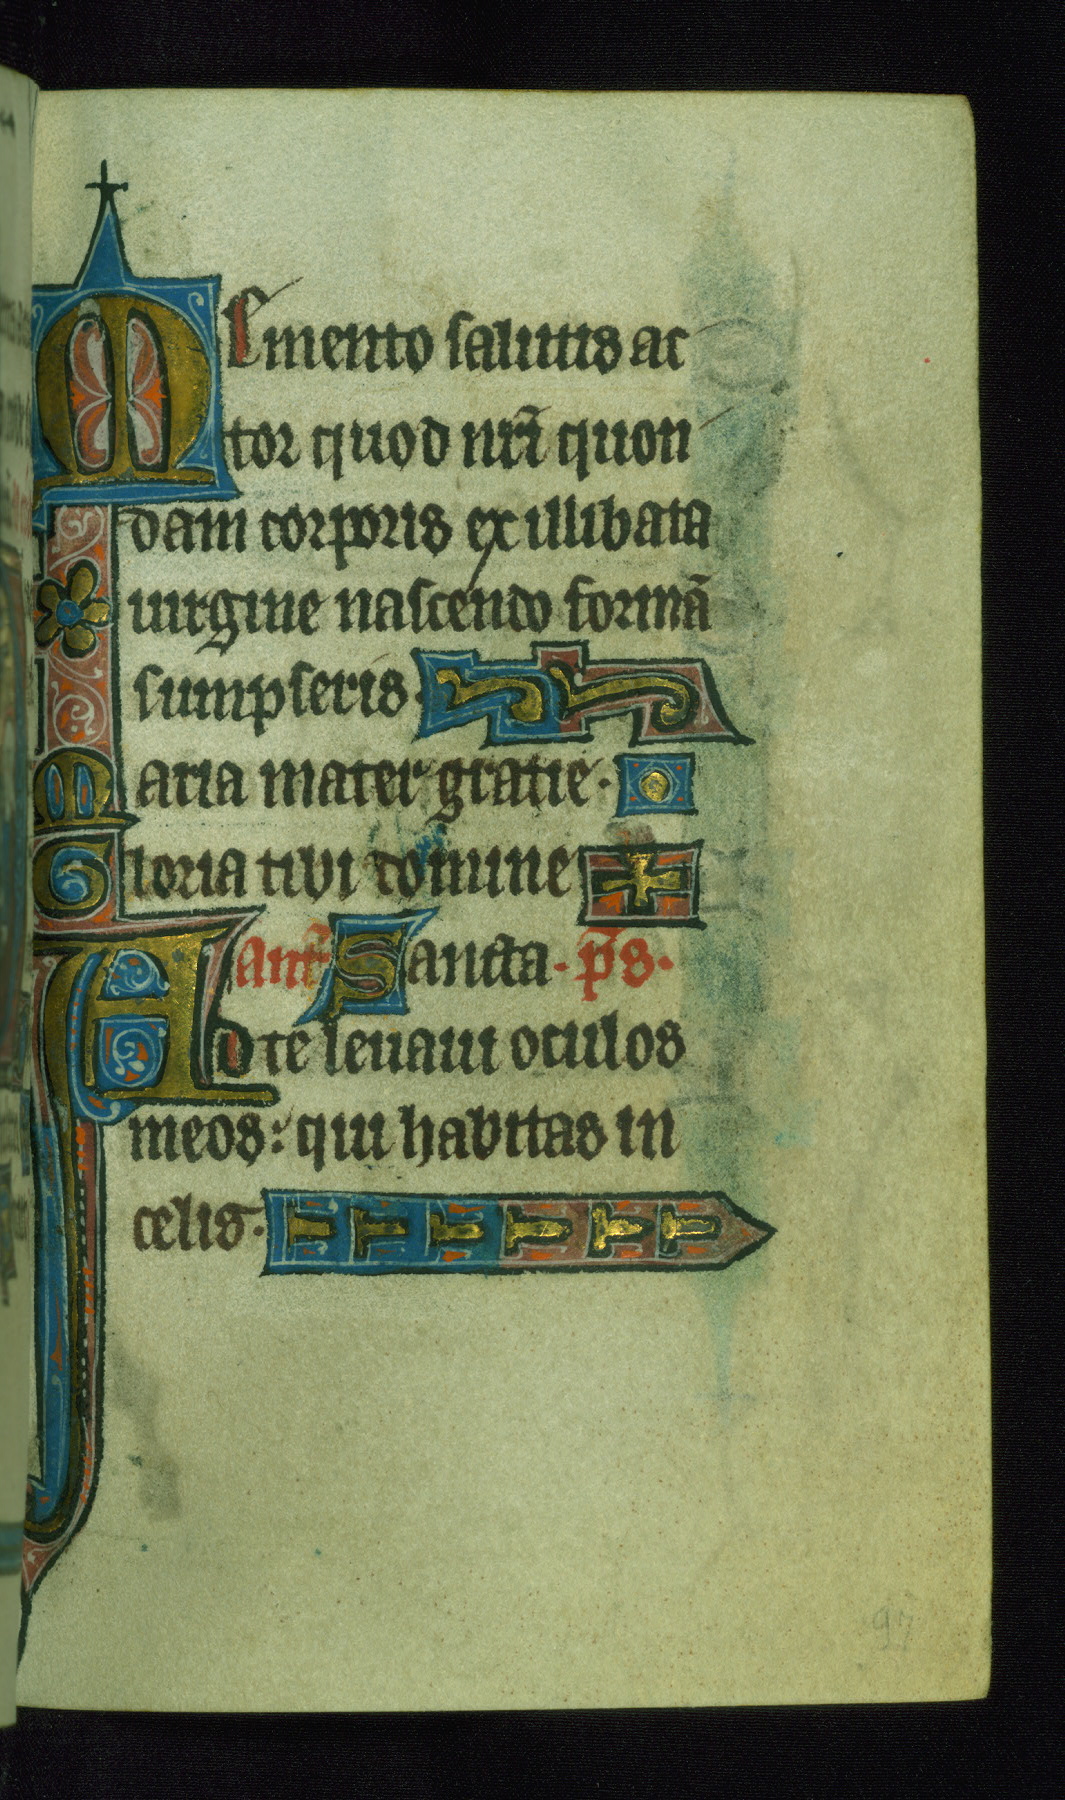 Memento salutis ac
tor quod nr̃i quon
dam corporis ex illibata
uirgine nascendo formã
sumpseris.
Maria mater gratie.
Gloria tibi domine
ant̃. Sancta. p̃s.
Ad te leuaui oculos
meos: qui habitas in
celis.
97